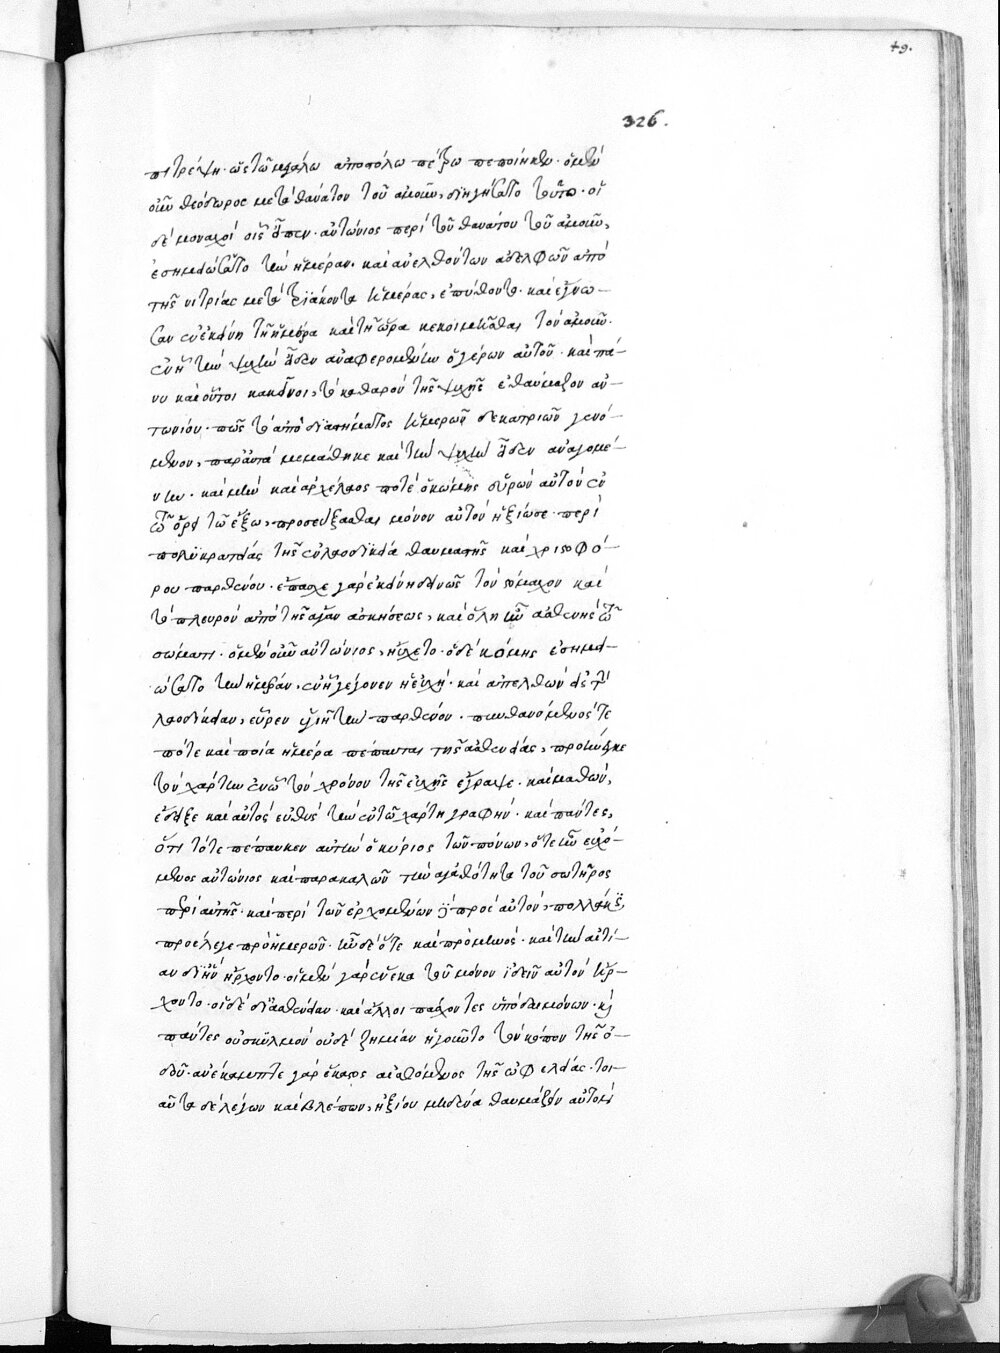 πιτρέψη· ὡς τῶ μεγάλω ἀποστόλω πέτρω πεποίηκεν· ὁ μὲν
οὖν θεόδωρος μετὰ θάνατον τοῦ ἀμοῦν, διηγήσατο τοῦτο· οἱ
δὲ μοναχοί οἷς εἶπεν ἀντώνιος περὶ τοῦ θανάτου τοῦ ἀμοῦν,
ἐσημειώσαντο τὴν ἡμέραν· καὶ ἀνελθόντων ἀδελφῶν ἀπὸ
τῆς νιτρίας μετὰ τριάκοντα ἡμέρας, ἐπύθοντο· καὶ ἔγνω–
σαν ἐν ἐκείνη τῆ ἡμέρα καὶ τῆ ὥρα κεκοιμῆσθαι τὸν ἀμοῦν·
ἐν ἧ τὴν ψυχὴν εἶδεν ἀναφερομένην ὁ γέρων αὐτοῦ· καὶ πά–
νυ καὶ οὗτοι κἀκεῖνοι, τὸ καθαρὸν τῆς ψυχῆς ἐθαύμαζον ἀν–
τωνίου· πῶς τὸ ἀπὸ διαστήματος ἡμερῶν δεκατριῶν γενό–
μενον, παραυτὰ μεμάθηκε καὶ τὴν ψυχὴν εἶδεν ἀναγομέ–
νην· καὶ μὴν καὶ ἀρχέλαος ποτὲ ὁ κόμης εὑρὼν αὐτὸν ἐν
τῶ ὄρει τῶ ἔξω, προσεύξασθαι μόνον αὐτὸν ἠξίωσε περὶ
πολυκρατείας τῆς ἐν λαοδικεία θαυμαστῆς καὶ χριστοφό–
ρου παρθένου· ἔπασχε γὰρ ἐκείνη δεινῶς τὸν στόμαχον καὶ
τὸ πλευρὸν ἀπὸ τῆς ἄγαν ἀσκήσεως, καὶ ὅλη ἦν ἀσθενὴς τῶ
σώματι· ὁ μὲν οὖν ἀντώνιος, ηὔχετο· ὁ δὲ κόμης ἐσημει–
ώσατο τὴν ἡμέραν, ἐν ἧ γέγονεν ἡ εὐχή· καὶ ἀπελθὼν εἰς τὴν
λαοδίκειαν, εὗρεν ὑγιῆ τὴν παρθένον· πυνθανόμενος δὲ
πότε καὶ ποία ἡμέρα πέπαυται τῆς ἀσθενείας, προήνεγκε
τὸν χάρτην ἐν ὧ τὸν χρόνον τῆς εὐχῆς ἔγραψε· καὶ μαθών,
ἔδειξε καὶ αὐτὸς εὐθὺς τὴν ἐν τῶ χάρτη γραφήν· καὶ πάντες,
ὅτι τότε πέπαυκεν αὐτὴν ὁ κύριος τῶν πόνων, ὅτε ἦν εὐχό–
μενος ἀντώνιος καὶ παρακαλῶν τὴν ἀγαθότητα τοῦ σωτῆρος
περὶ αὐτῆς· καὶ περὶ τῶν ἐρχομένων δὲ πρὸς αὐτόν, πολλάκις
προέλεγε πρὸ ἡμερῶν· ἦν δὲ ὅτε καὶ πρὸ μηνός· καὶ τὴν αἰτί–
αν δι' ἣν ἤρχοντο· οἱ μὲν γὰρ ἕνεκα τοῦ μόνον ἰδεῖν αὐτὸν ἤρ–
χοντο· οἱ δὲ δι' ἀσθένειαν· καὶ ἄλλοι πάσχοντες ὑπὸ δαιμόνων· καὶ
πάντες οὐ σκυλμὸν οὐδὲ ζημίαν ἡγοῦντο τὸν κόπον τῆς ὁ–
δοῦ· ἀνέκαμπτε γὰρ ἕκαστος αἰσθόμενος τῆς ὠφελείας· τοι–
αῦτα δὲ λέγων καὶ βλέπων, ἠξίου μηδένα θαυμάζειν αὐτὸν
326.
49.